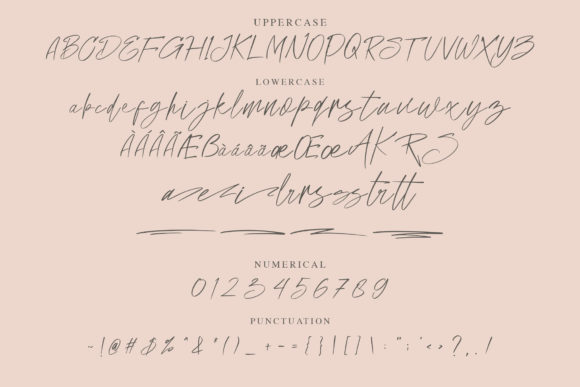 UPPERCASE
ABCDEFGHIJKLMNOPQRSTUVWXYZ
LOWERCASE
abcdefghijklmnopqrstuvwxyz
ÀÁÂÃÄÆBàáâãäæŒœAKRS
azezidrrsssttrtt
NUMERICAL
0123456789
PUNCTUATION
~!@#$%^&*()_+-={}|[]\:";'<>?,./